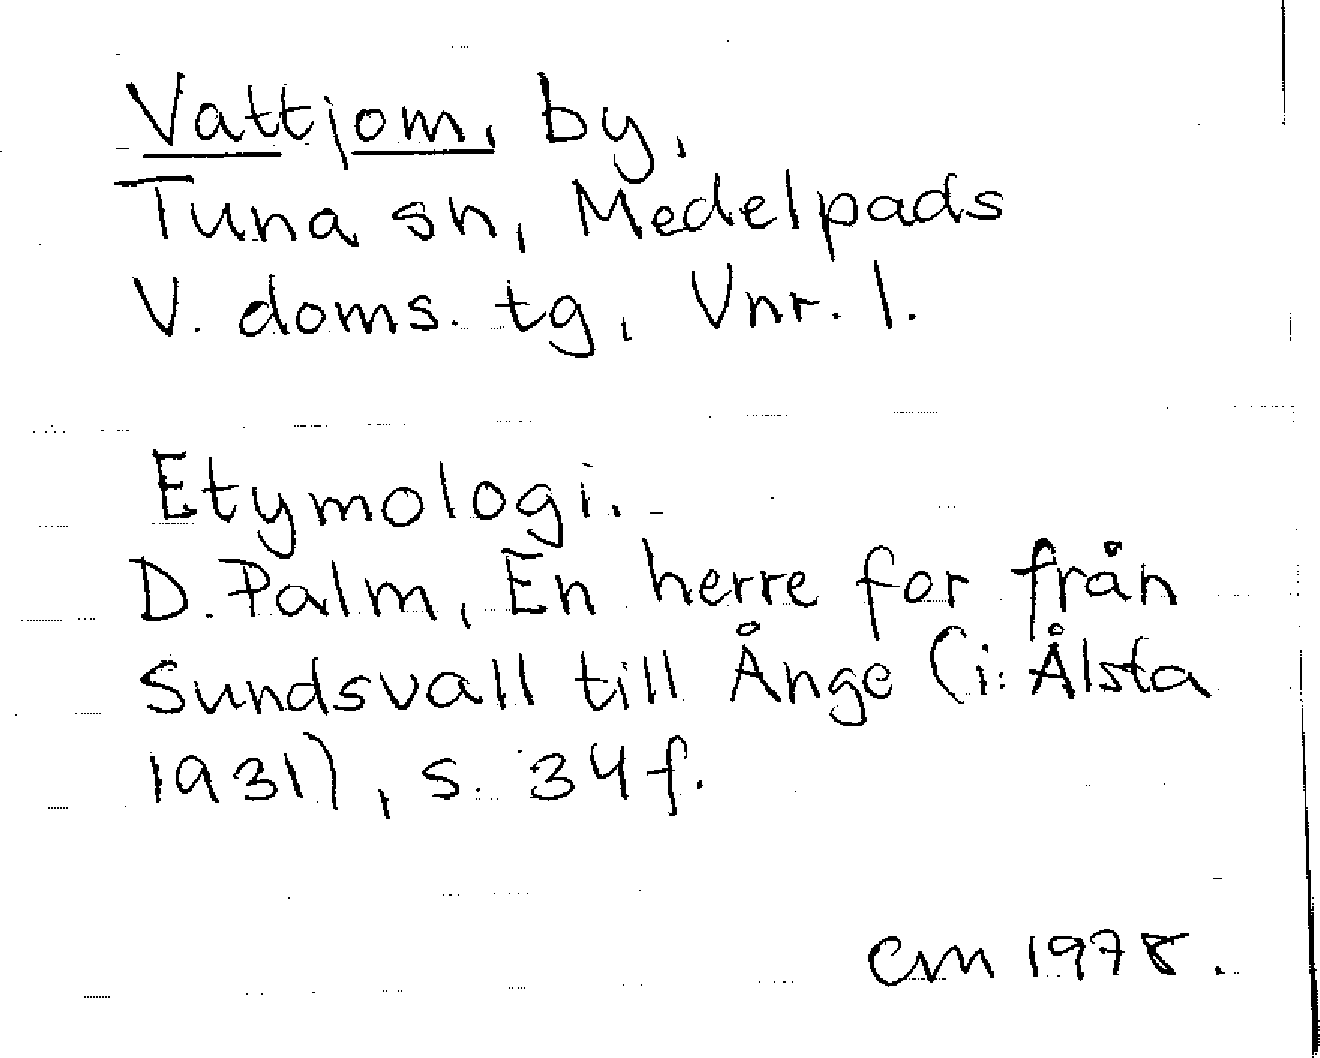 Vattjom, by,
Tuna sn, Medelpads
V. doms. tg, Vnr. 1.
Etymologi.
D. Palm, En herre for från
Sundsvall till Ånge (i: Ålsta
1931), s. 34 f.
CM 1978.